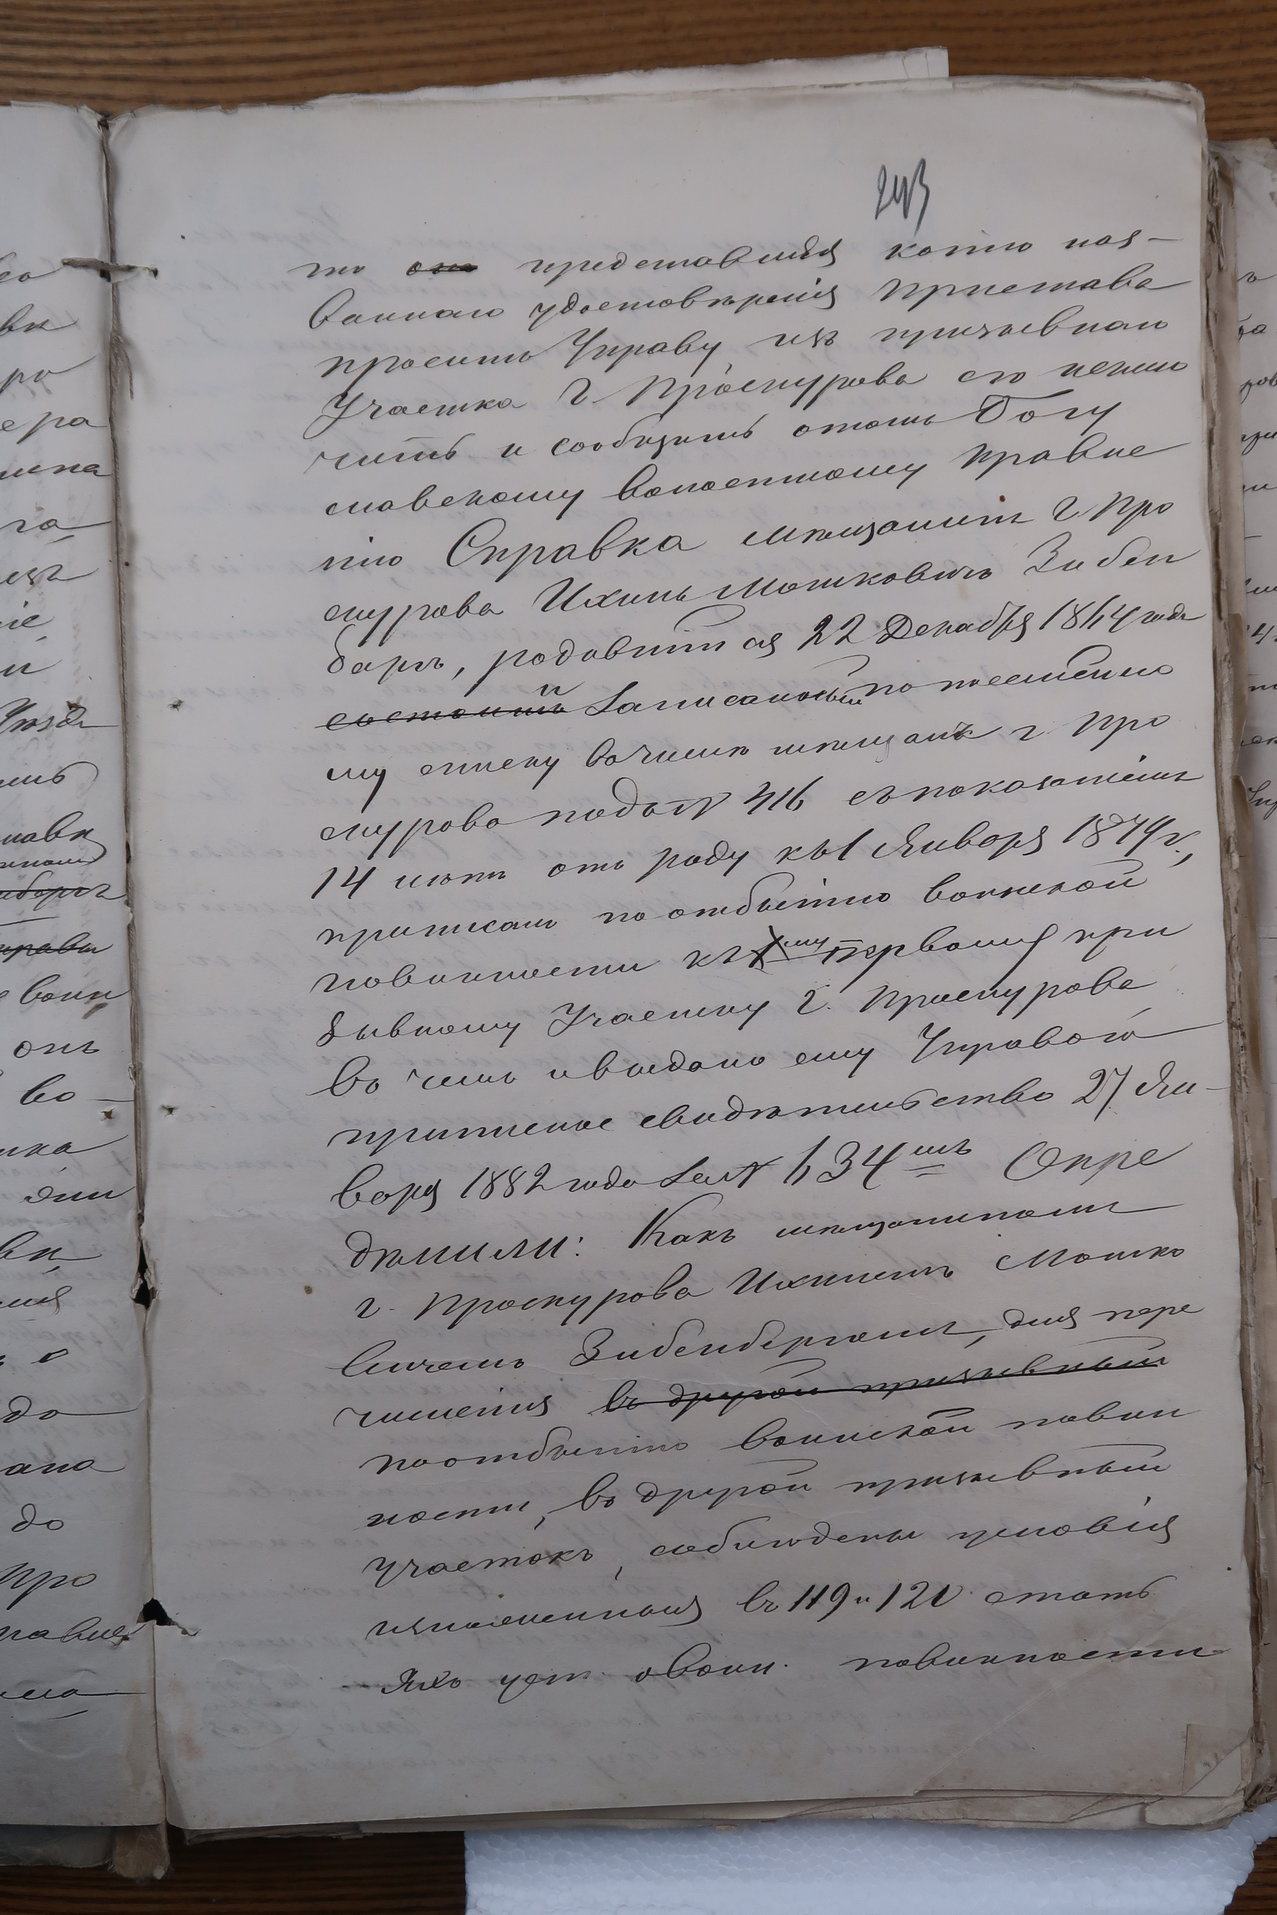 243
то она представивъ копію наз-
ваннаго удостовѣренія Пристава
проситъ Управу изъ призывнаго
Участка г. Проскурова его исклю
чить и сообщить о томъ Богу
славскому волостному правле
нію Справка мѣщанинъ г. Про
скурова Ихиль Мошковичъ Зибен
бергъ, родавшійся 22 Декабря 1864 года
состоитъ записанный по посемейно
му списку въ числѣ мѣщанъ г. Про
скурова подъ № 416 съ показаніемъ
14 лѣтъ отъ роду къ 1 Января 1874 г.,
приписанъ по отбытію воинской
повинности къ 1му первому при
зывному Участку г. Проскурова
въ чемъ и выдано ему Управою
приписное свидѣтельство 27 Ян-
варя 1882 года за № 134мъ Опре
дѣлили: Какъ мѣщаниномъ
г. Проскурова Ихилемъ Мошко
вичемъ Зибенбергомъ, для пере
численія въ другой призывный
по отбытію воинской повин
ности, въ другой призывный
участокъ, соблюдены условія
изложенныя въ 119 и 120 стать
яхъ уст. о воин. повинности